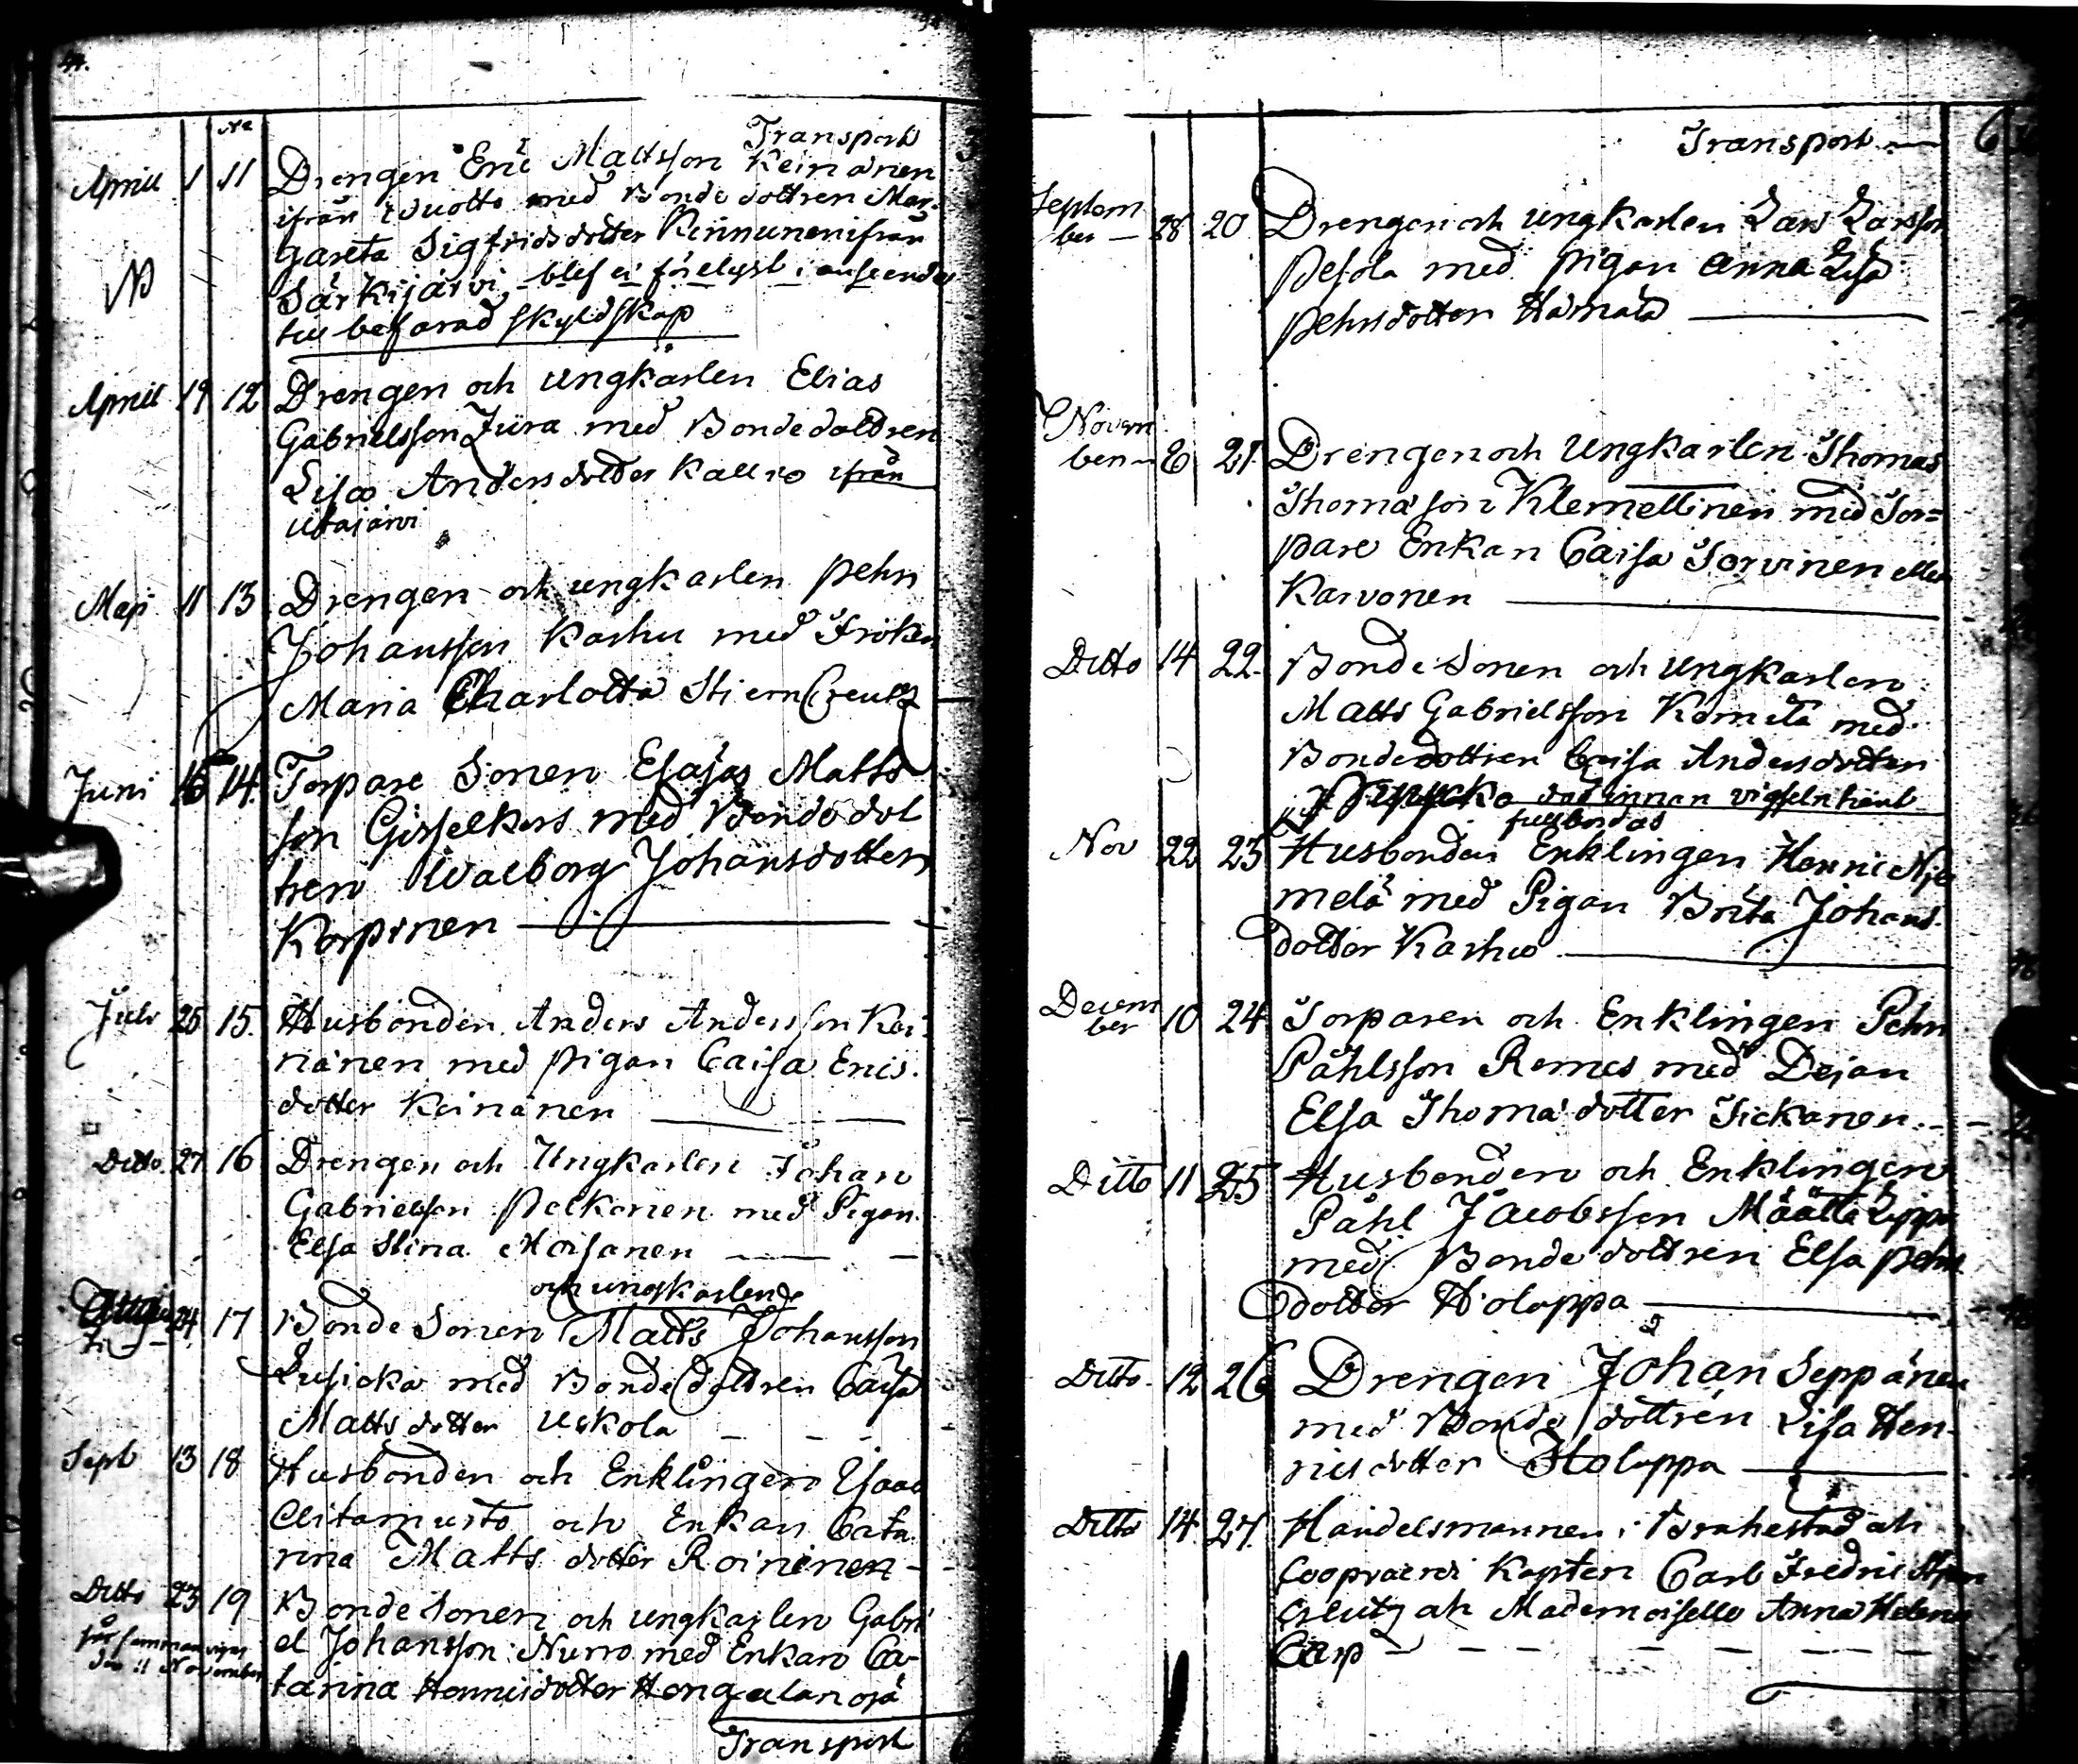 No
Transport
April 1 11 Drengen Eric Mattsson Keinänen
ifrån Wuotto med Bonde dottren Mar-
gareta Sigfridsdotter Kinnunen ifrån
NB Särkijärvi, blef ei förelyst i anseende
till befarad skyldskap
April 19 12 Drengen och ungkarlen Elias
Gabrielsson Jura med Bondedottren
Lisa Andersdotter Kallio ifrån
Utajärvi
Maji 11 13 Drengen och ungkarlen Pehr
Johansson Karhu med Fröken
Maria Charlotta StiernCreutz
Juni 16 14. Torpare Sonen Esajas Matts
son Gisselkors med Bonde dot
tren Walborg Johansdotter
Korpinen
Juli 25 15. Husbonden Anders Andersson Kei-
nänen med pigan Caisa Erics.
dotter Keinänen
Ditto 27 16 Drengen och Ungkarlen Johan
Gabrielsson Pelkonen med Pigan
Elsa Stina Moisanen
och ungkarlen
24 17 Bonde Sonen Matts Johansson
Lusicka med Bonde dottren Caisa
Matts dotter Uskola
Sept 13 18 Husbonden och Enklingen Isaac
Alitamusto och Enkan Cata
rina Matts dotter Roininen
Ditto 23 19 Bonde sonen och ungkarlen Gabri
får sammanviges el Johansson Nurro med Enkan Ca-
den 11 November tarina Henricsdotter Hongalanoja
Transport
Transport 6
Septem
ber 28 20 Drengen och ungkarlen Lars Larsson
Pesola med pigan Anna Lisa
Pehrsdotter Hämälä
Novem
ber 6 21. Drengen och Ungkarlen Thomas
Thomasson Klemettinen med Tor=
pare Enkan Caisa Torvinen eller
Karvonen
Ditto 14 22. Bonde Sonen och ungkarlen
Matts Gabrielsson Komula med
Bondedottren Caisa Andersdotter
död innan vigseln hant
fullbordas
Nov 22 23 Husbonden Enklingen Henric Nie
melä med Pigan Brita Johans
dotter Karhu
Decem
ber 10 24 Torparen och Enklingen Pehr
Påhlsson Remes med Dejan
Elsa Thomädotter Tickanen
Ditto 11 25 Husbonden och Enklingen
Påhl Jacobsson Määttä
med Bonde dottren Elsa Pehrs
dotter Holappa
Ditto 12 26 Drengen Johan Seppänen
med Bonde dottren Lisa Hen-
ricsdotter Holappa
Ditto 14 27. Handelsmannen i Brahestad och
Coopvaerdi Kapten Carl Fredric Stjern
creutz och Mademoiselle Anna Helena
Carp